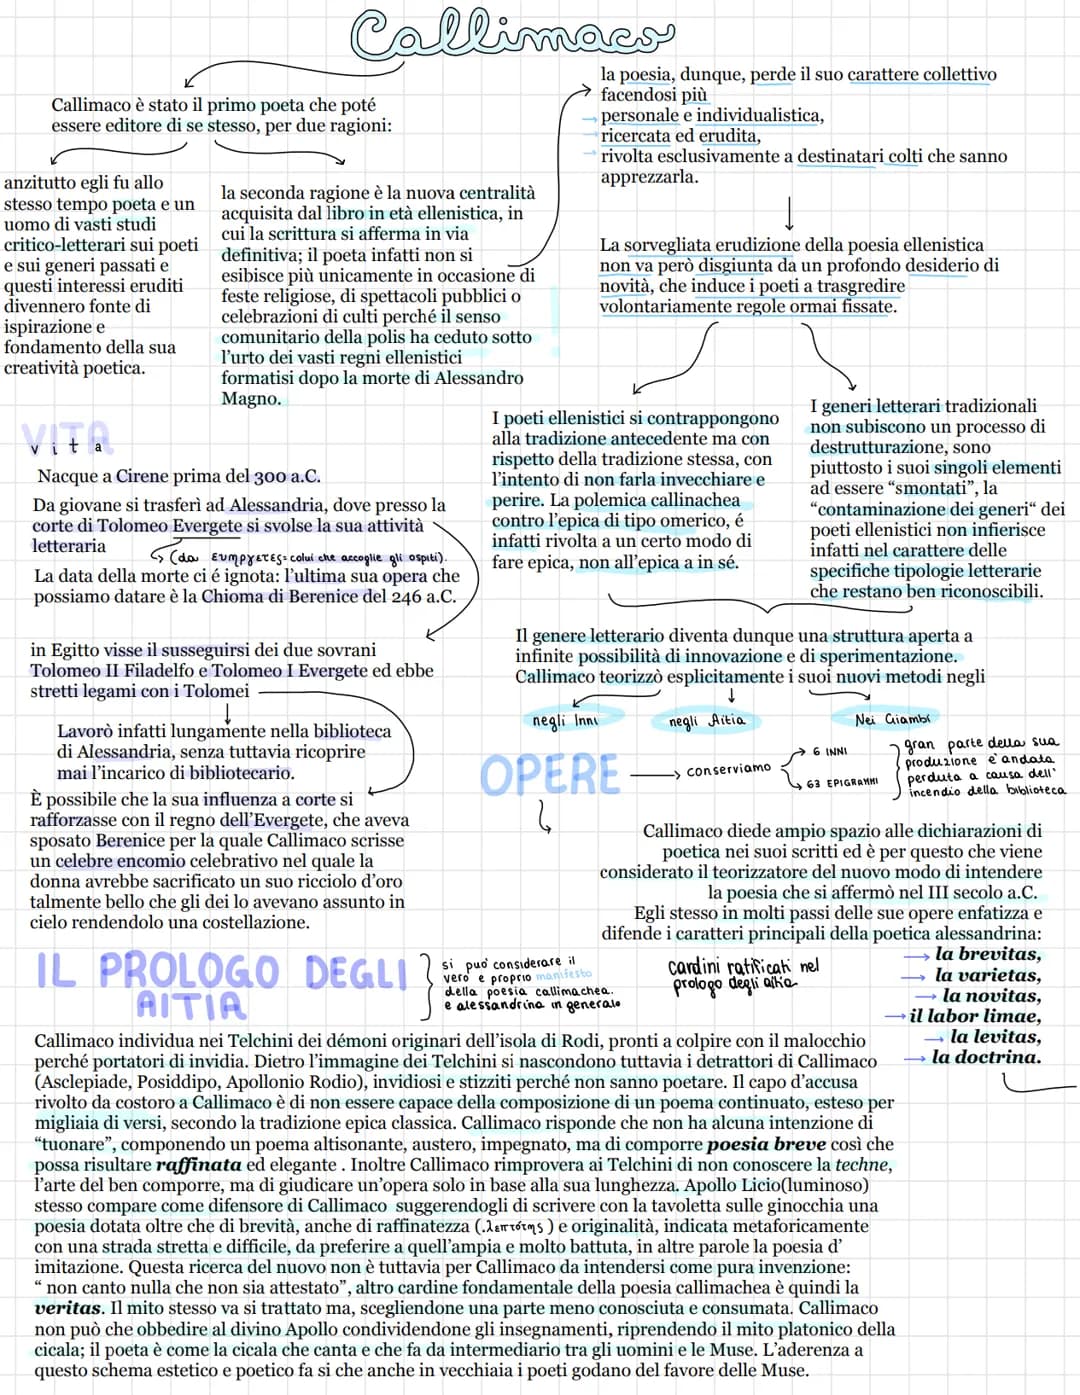 Callimaco
Callimaco è stato il primo poeta che poté
essere editore di se stesso, per due ragioni:
anzitutto egli fu allo
stesso tempo poeta e un
uomo di vasti studi
critico-letterari sui poeti
e sui generi passati e
questi interessi eruditi
divennero fonte di
ispirazione e
fondamento della sua
creatività poetica.
la seconda ragione è la nuova centralità
acquisita dal libro in età ellenistica, in
cui la scrittura si afferma in via
definitiva; il poeta infatti non si
esibisce più unicamente in occasione di
feste religiose, di spettacoli pubblici o
celebrazioni di culti perché il senso
comunitario della polis ha ceduto sotto
l'urto dei vasti regni ellenistici
formatisi dopo la morte di Alessandro
Magno.
!
la poesia, dunque, perde il suo carattere collettivo
facendosi più
→ personale e individualistica,
→ ricercata ed erudita,
→ rivolta esclusivamente a destinatari colti che sanno
apprezzarla.
La sorvegliata erudizione della poesia ellenistica
non va però disgiunta da un profondo desiderio di
novità, che induce i poeti a trasgredire
volontariamente regole ormai fissate.
I poeti ellenistici si contrappongono
alla tradizione antecedente ma con
rispetto della tradizione stessa, con
l'intento di non farla invecchiare e
perire. La polemica callinachea
contro l'epica di tipo omerico, é
infatti rivolta a un certo modo di
fare epica, non all'epica a in sé.
I generi letterari tradizionali
non subiscono un processo di
destrutturazione, sono
piuttosto i suoi singoli elementi
ad essere “smontati”, la
“contaminazione dei generi“ dei
poeti ellenistici non infierisce
infatti nel carattere delle
specifiche tipologie letterarie
che restano ben riconoscibili.
Il genere letterario diventa dunque una struttura aperta a
infinite possibilità di innovazione e di sperimentazione.
Callimaco teorizzò esplicitamente i suoi nuovi metodi negli
negli Inni
negli Aitia
Nei Giambi
VITA
vita
Nacque a Cirene prima del 300 a.C.
Da giovane si trasferì ad Alessandria, dove presso la
corte di Tolomeo Evergete si svolse la sua attività
letteraria
↳ (da εumρyετες= colui che accoglie gli ospiti).
La data della morte ci é ignota: l'ultima sua opera che
possiamo datare è la Chioma di Berenice del 246 a.C.
in Egitto visse il susseguirsi dei due sovrani
Tolomeo II Filadelfo e Tolomeo I Evergete ed ebbe
stretti legami con i Tolomei
Lavorò infatti lungamente nella biblioteca
di Alessandria, senza tuttavia ricoprire
mai l'incarico di bibliotecario.
È possibile che la sua influenza a corte si
rafforzasse con il regno dell'Evergete, che aveva
sposato Berenice per la quale Callimaco scrisse
un celebre encomio celebrativo nel quale la
donna avrebbe sacrificato un suo ricciolo d'oro
talmente bello che gli dei lo avevano assunto in
cielo rendendolo una costellazione.
OPERE → conserviamo
→ 6 INNI
↳ 63 EPIGRAMMI
gran parte della sua
produzione e' andata
perduta a causa dell'
incendio della biblioteca
Callimaco diede ampio spazio alle dichiarazioni di
poetica nei suoi scritti ed è per questo che viene
considerato il teorizzatore del nuovo modo di intendere
la poesia che si affermò nel III secolo a.C.
Egli stesso in molti passi delle sue opere enfatizza e
difende i caratteri principali della poetica alessandrina:
→ la brevitas,
→ la varietas,
→ la novitas,
→ il labor limae,
→ la levitas,
→ la doctrina.
cardini ratificati nel
prologo degli aitia
IL PROLOGO DEGLI
AITIA
si puo' considerare il
vero e proprio manifesto
della poesia callimachea.
e alessandrina in generale
Callimaco individua nei Telchini dei démoni originari dell'isola di Rodi, pronti a colpire con il malocchio
perché portatori di invidia. Dietro l'immagine dei Telchini si nascondono tuttavia i detrattori di Callimaco
(Asclepiade, Posidippo, Apollonio Rodio), invidiosi e stizziti perché non sanno poetare. Il capo d'accusa
rivolto da costoro a Callimaco è di non essere capace della composizione di un poema continuato, esteso per
migliaia di versi, secondo la tradizione epica classica. Callimaco risponde che non ha alcuna intenzione di
“tuonare”, componendo un poema altisonante, austero, impegnato, ma di comporre poesia breve così che
possa risultare raffinata ed elegante . Inoltre Callimaco rimprovera ai Telchini di non conoscere la techne,
l'arte del ben comporre, ma di giudicare un'opera solo in base alla sua lunghezza. Apollo Licio(luminoso)
stesso compare come difensore di Callimaco suggerendogli di scrivere con la tavoletta sulle ginocchia una
poesia dotata oltre che di brevità, anche di raffinatezza (.λεπτότης ) e originalità, indicata metaforicamente
con una strada stretta e difficile, da preferire a quell'ampia e molto battuta, in altre parole la poesia d'
imitazione. Questa ricerca del nuovo non è tuttavia per Callimaco da intendersi come pura invenzione:
“ non canto nulla che non sia attestato”, altro cardine fondamentale della poesia callimachea è quindi la
veritas. Il mito stesso va si trattato ma, scegliendone una parte meno conosciuta e consumata. Callimaco
non può che obbedire al divino Apollo condividendone gli insegnamenti, riprendendo il mito platonico della
cicala; il poeta è come la cicala che canta e che fa da intermediario tra gli uomini e le Muse. L'aderenza a
questo schema estetico e poetico fa si che anche in vecchiaia i poeti godano del favore delle Muse.